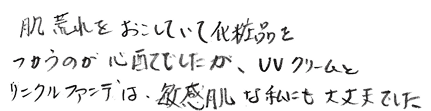 肌荒れをおこしていて化粧品を
つかうのが心配でしたが、UVクリームと
リンクルファンデは、敏感肌な私にも大丈夫でした